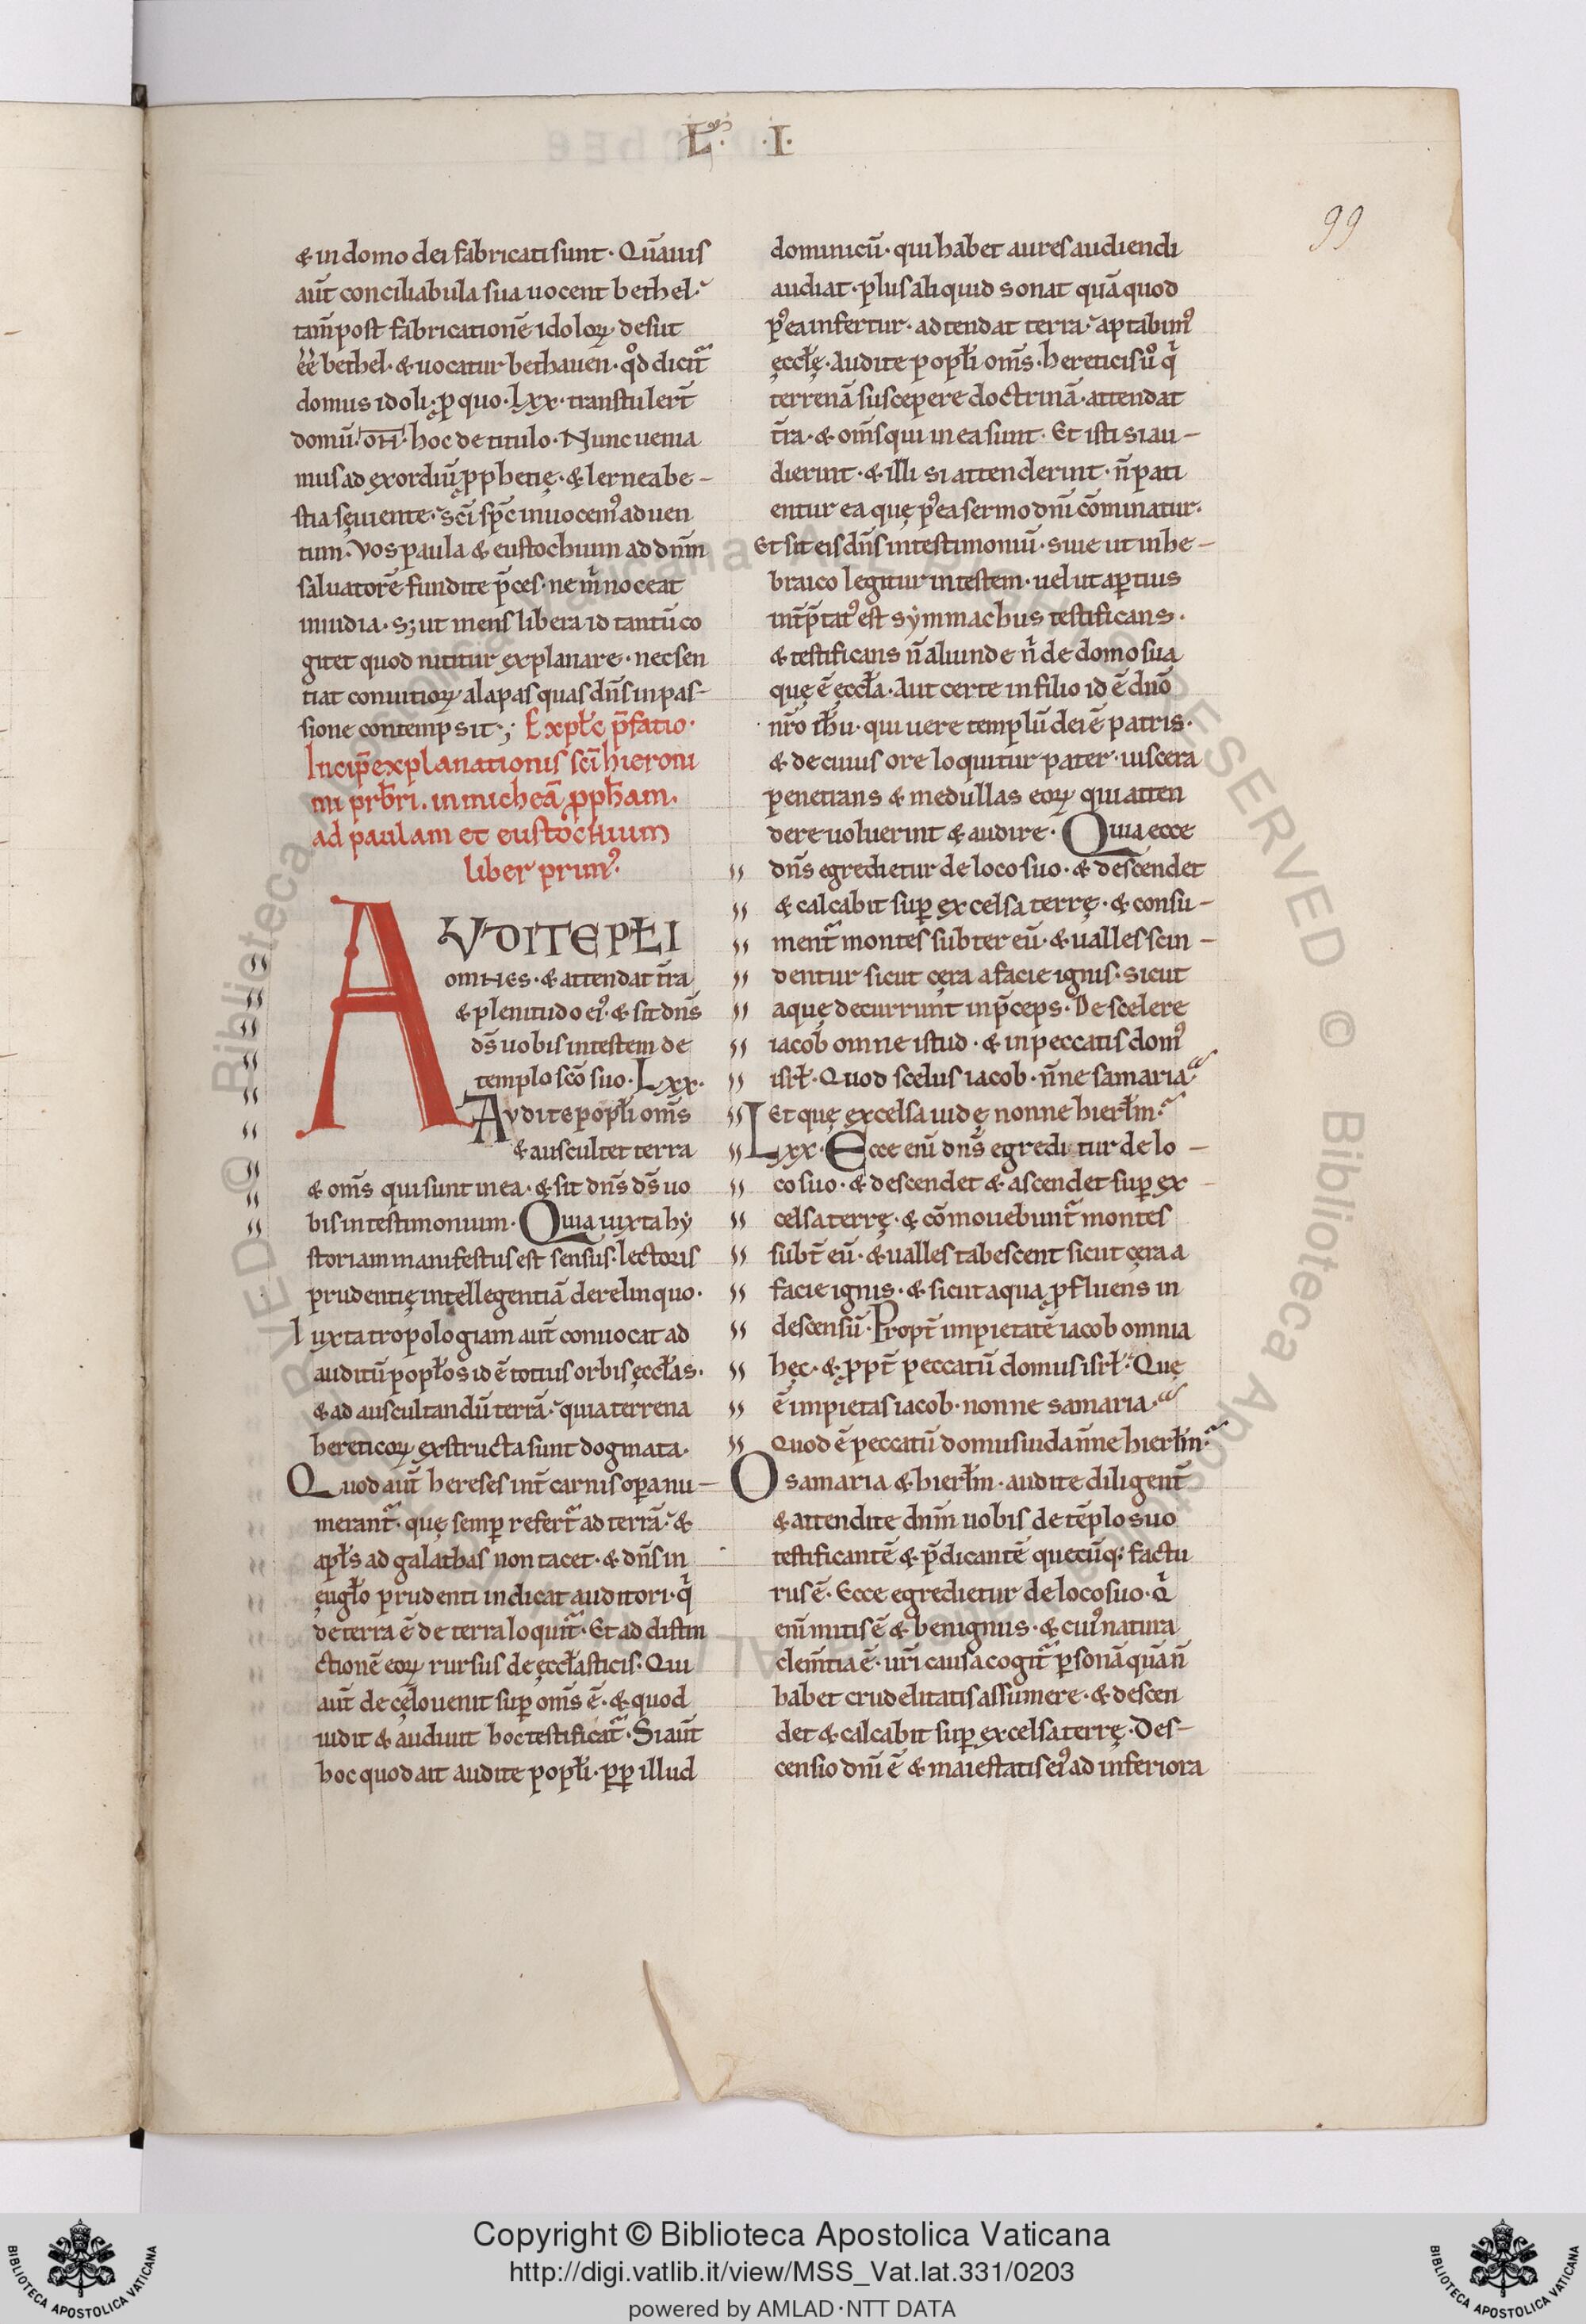 L. .I.
99
& in domo dei fabricati sunt. Quãuis
aut̃ conciliabula sua uocent bethel.
tam̃ post fabricationẽ idoloꝝ desiit
ẽẽ bethel. & uocatur bethauen. qd̊ dicit̃
domus idoli. ꝓ quo. Lxx. transtuler̃t
domũ. oñ. hoc de titulo. Nunc uenia
mus ad exordiũ ꝓphetię. & lerne abe-
stia sęuiente. sc̃i sp̃c inuocem᾿ aduen
tum. Vos paula & eustochium ad dnm̃
saluatorẽ fundite p̃ces. ne m̃ noceat
inuidia. sꝫ ut mens libera id tantũ co
gitet quod nititur explanare. nec sen
tiat conuitioꝝ alapas quas dñs in pas-
sione contempsit.; Explc̃ p̃fatio.
Incip̃ explanationis sc̃i hieroni
mi prb̃ri. in micheã ꝓph̃am.
ad paulam et eustochium
liber prim᾿.
AVDITE PŁI
omnes. & attendat t̃ra
& plenitudo ei᾿. & sit dñs
d̃s uobis in testem de
templo sc̃o suo. Lxx.
Audite popłi om̃s
& auscultet terra
& om̃s qui sunt in ea. & sit dñs d̃s uo
bis in testimonium. Quia iuxta hy
storiam manifestus est sensus. lectoris
prudentię intellegentiã derelinquo.
Iuxta tropologiam aut̃ conuocat ad
auditũ popłos id ẽ totius orbis ęccłas.
& ad auscultandũ terrã. quia terrena
hereticoꝝ exstructa sunt dogmata.
Quod aut̃ hereses int̃ carnis oꝑa nu-
merant̃. quę semꝑ refert̃ ad terrã. &
apłs ad galathas non tacet. & dñs in
ęugło prudenti indicat auditori. q̓
de terra ẽ de terra loquit̃. Et ad distin
ctionẽ eoꝝ rursus de ęccłasticis. Qui
aut̃ de cęlo uenit suꝑ om̃s ẽ. & quod
uidit & audiuit hoc testificat̃. Si aut̃
hoc quod ait audite popłi. ꝓꝑ illud
dominicũ. qui habet aures audiendi
audiat. plus aliquid sonat quã quod
p᾿ea infertur. adtendat terra. aptabim᾿
ęccłę. Audite popłi om̃s. hereticis uº q̓
terrenã suscepere doctrinã. attendat
t̃ra. & om̃s qui in ea sunt. Et isti si au-
dierint. & illi si attenderint. ñ pati
entur ea quę p᾿ea sermo dnĩ cõminatur.
Et sit eis dñs in testimoniũ. siue ut in he-
braico legitur in testem. uel ut aꝑtius
int̃p̃tat᾿ est sẏmmachus testificans.
& testificans ñ aliunde n̓ de domo sua
quę ẽ ęccła. Aut certe in filio id ẽ dnõ
nr̃o ih̃u. qui uere templũ dei ẽ patris.
& de cuius ore loquitur pater. uiscera
penetrans & medullas eoꝝ qui atten
dere uoluerint & audire. Quia ecce
dñs egredietur de loco suo. & descendet
& calcabit suꝑ excelsa terrę. & consu-
ment̃ montes subter eũ. & ualles scin-
dentur sicut cęra a facie ignis. sicut
aquę decurrunt in p̃ceps. De scelere
iacob omne istud. & in peccatis dom᾿
isrł. Quod scelus iacob. ñne samaria.
Et quę excelsa iudę nonne hierłm.
Lxx. Ecce enĩ dñs egreditur de lo-
co suo. & descendet & ascendet suꝑ ex-
celsa terrę. & cõmouebunt̃ montes
subt̃ eũ. & ualles tabescent sicut cęra a
facie ignis. & sicut aqua ꝓfluens in
descensũ. Propt̃ impietatẽ iacob omnia
hęc. & ꝓpt̃ peccatũ domus isrł. Quę
ẽ impietas iacob. nonne samaria.
Quod ẽ peccatũ domus iuda ñne hierłm.
O samaria & hierłm. audite diligent̃
& attendite dnm̃ uobis de tẽplo suo
testificantẽ & p̃dicantẽ quecũq; factu
rus ẽ. Ecce egredietur de loco suo. q̓
enĩ mitis ẽ & benignus. & cui᾿ natura
clem̃tia ẽ. ur̃i causa cogit̃ ꝑsonã quã ñ
habet crudelitatis assumere. & descen
det & calcabit suꝑ excelsa terrę. Des-
censio dnĩ ẽ & maiestatis ei᾿ ad inferiora
Copyright © Biblioteca Apostolica Vaticana
http://digi.vatlib.it/view/MSS_Vat.lat.331/0203
powered by AMLAD·NTT DATA
BIBLIOTECA APOSTOLICA VATICANA
BIBLIOTECA APOSTOLICA VATICANA